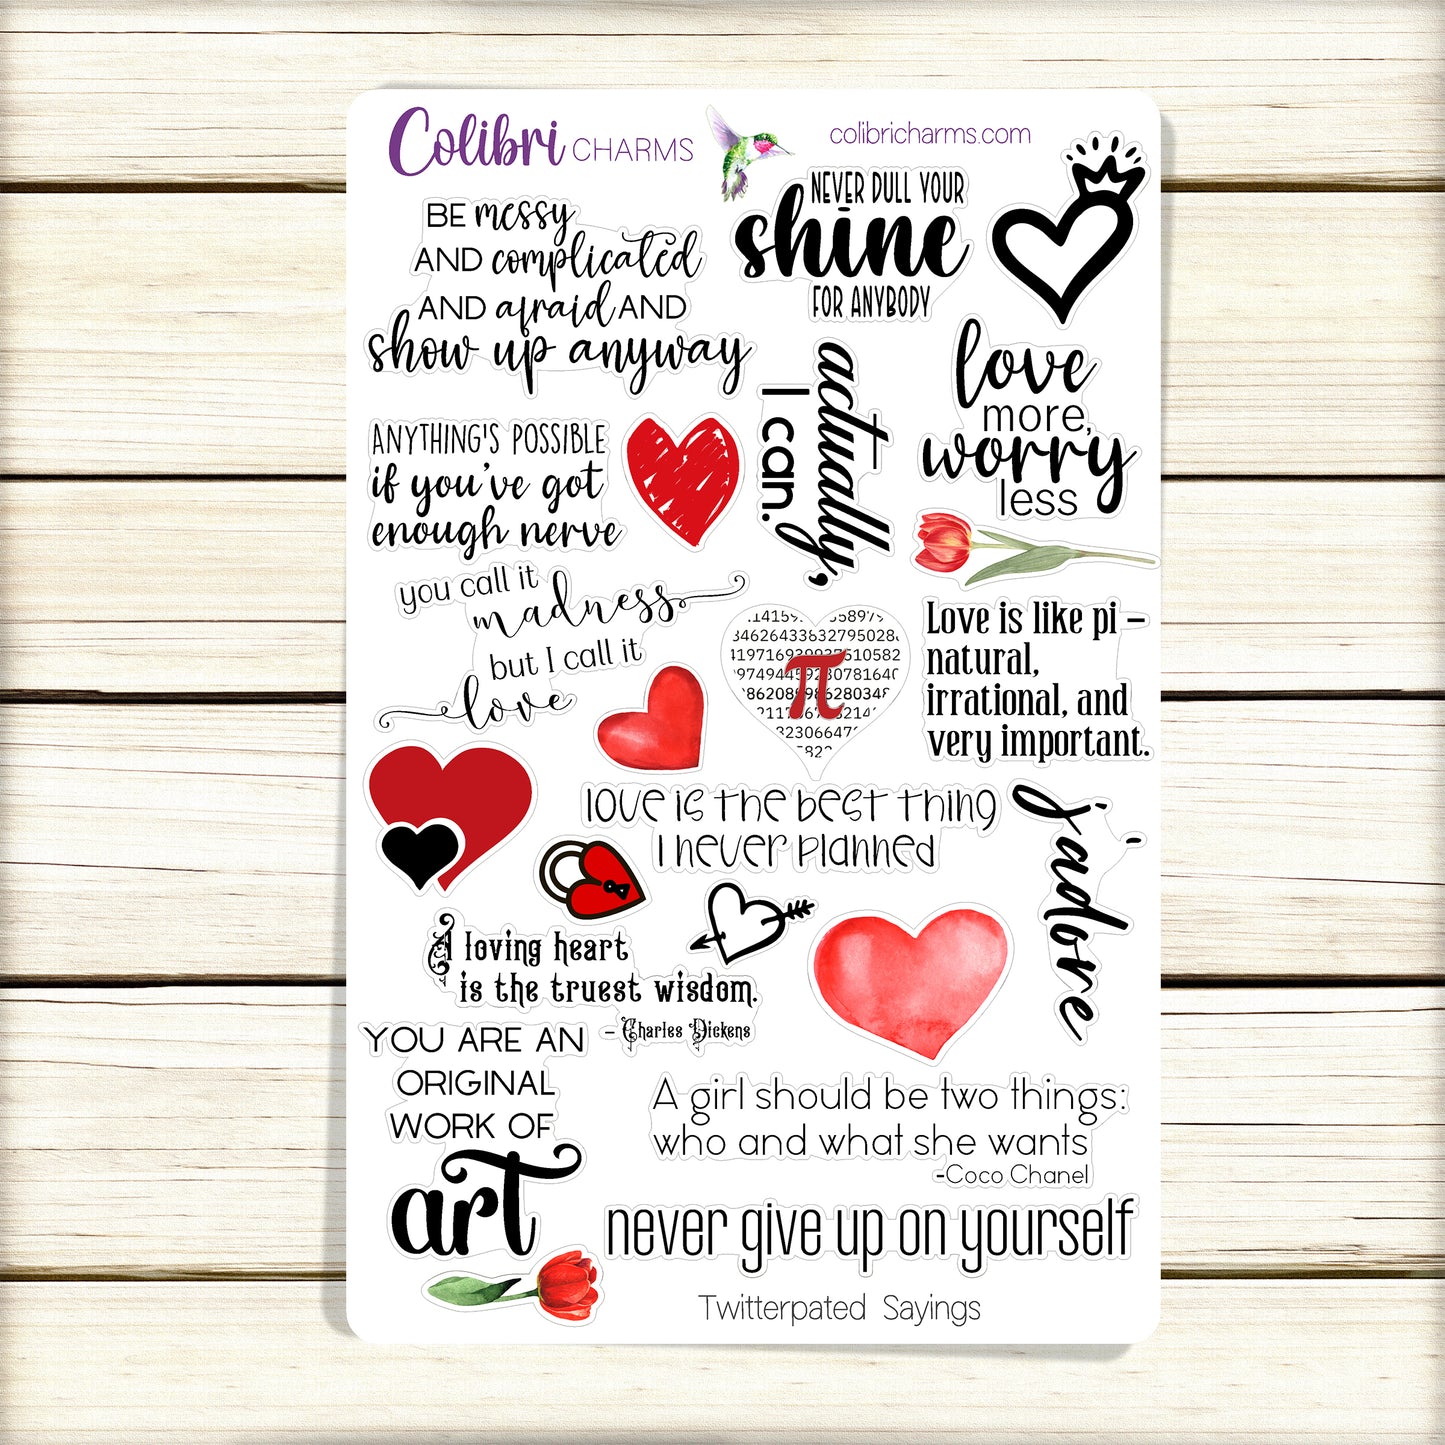 Colibri CHARMS
colibricharms.com
BE messy
AND complicated
AND afraid AND
show up anyway
NEVER DULL YOUR
shine
FOR ANYBODY
actually,
I can.
love
more,
worry
less
ANYTHING'S POSSIBLE
if you've got
enough nerve
you call it
madness
but I call it
love
π
Love is like pi –
natural,
irrational, and
very important.
love is the best thing
I never planned
j'adore
A loving heart
is the truest wisdom.
– Charles Dickens
YOU ARE AN
ORIGINAL
WORK OF
art
A girl should be two things:
who and what she wants
-Coco Chanel
never give up on yourself
Twitterpated Sayings